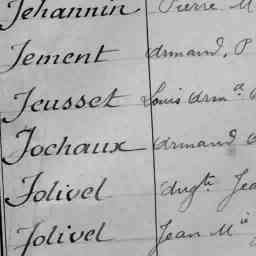 Jehannin Pierre M
Jement Armand, P
Jeusset Louis Arm^d
Jochaux Armand
Jolivel Aug^te Jea
Jolivel Jean M^ie